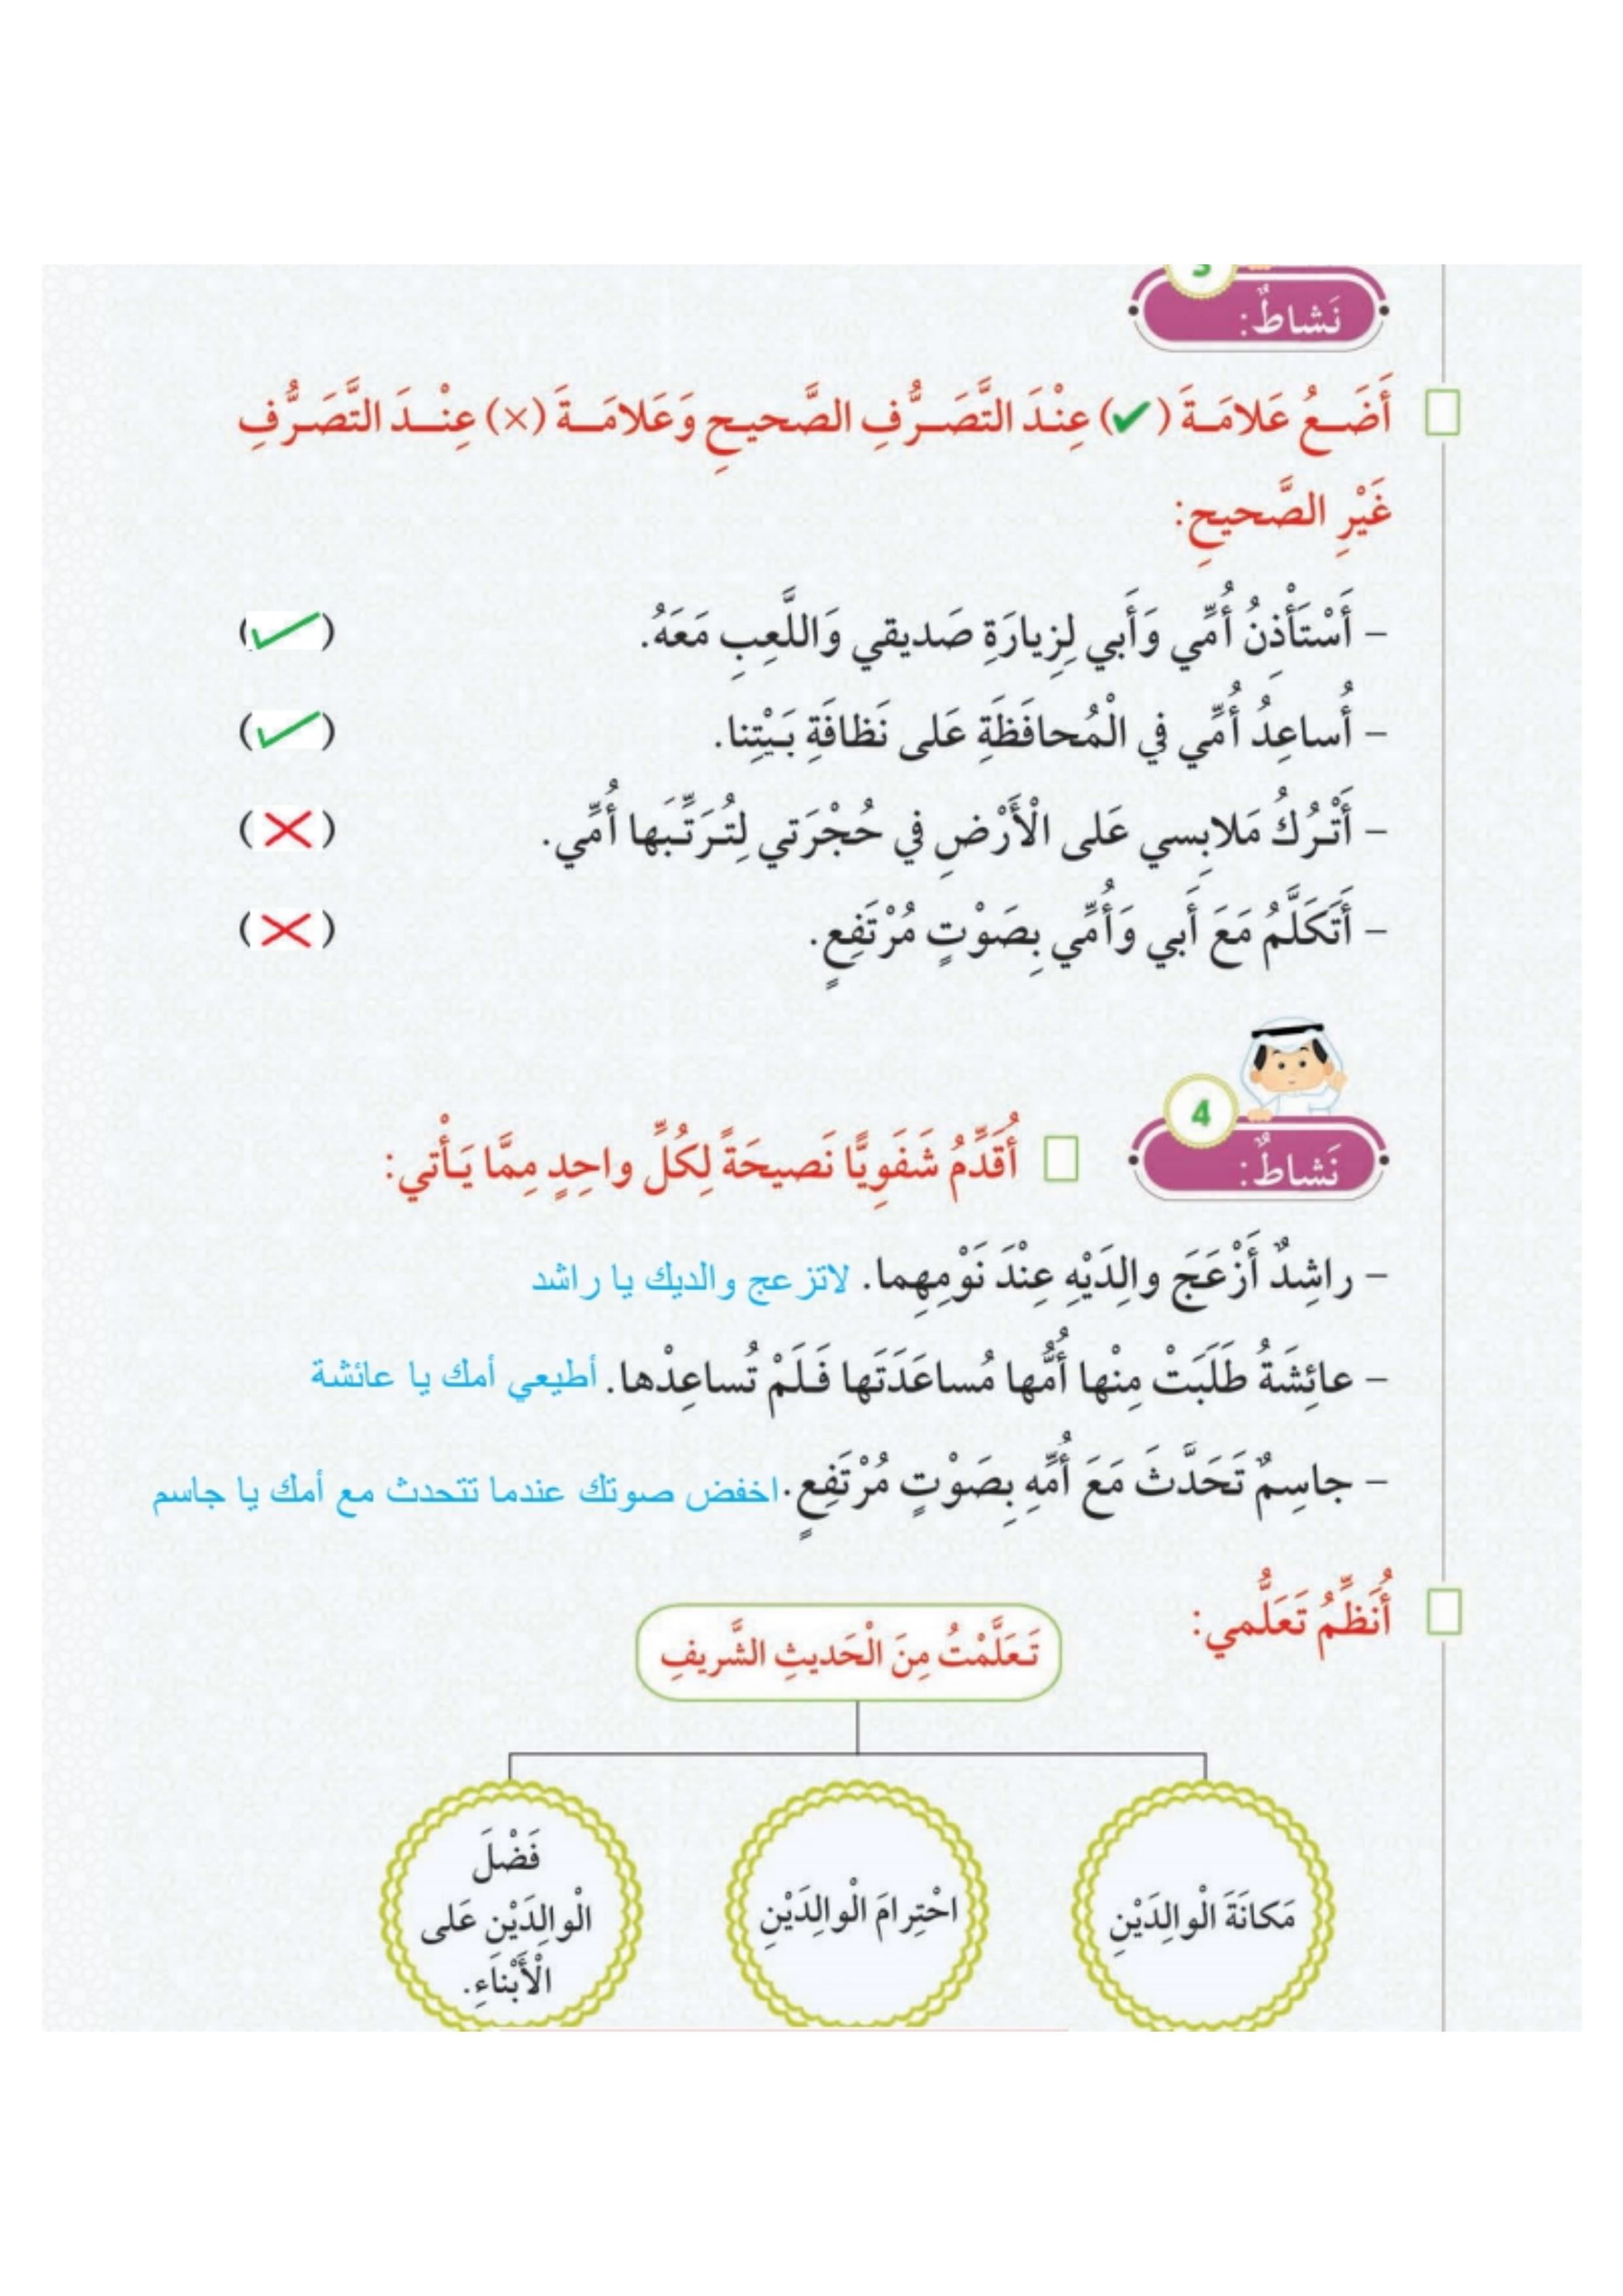 3
نَشاطٌ:
أَضَـعُ عَلامَـةَ (✔) عِنْدَ التَّصَـرُّفِ الصَّحيحِ وَعَلامَـةَ (×) عِنْـدَ التَّصَـرُّفِ
غَيْرِ الصَّحيحِ:
– أَسْتَأْذِنُ أُمِّي وَأَبي لِزِيارَةِ صَديقي وَاللَّعِبِ مَعَهُ. (✓)
– أُساعِدُ أُمِّي في الْمُحافَظَةِ عَلى نَظافَةِ بَـيْتِنا. (✓)
– أَتْـرُكُ مَلابِسي عَلى الْأَرْضِ في حُجْرَتي لِتُـرَتِّـبَها أُمِّي. (×)
– أَتَكَلَّمُ مَعَ أَبي وَأُمِّي بِصَوْتٍ مُرْتَفِعٍ. (×)
4
نَشاطٌ: أُقَدِّمُ شَفَوِيًّا نَصيحَةً لِكُلِّ واحِدٍ مِمَّا يَـأْتي:
– راشِدٌ أَزْعَجَ والِدَيْهِ عِنْدَ نَوْمِهِما. لاتزعج والديك يا راشد
– عائِشَةُ طَلَبَتْ مِنْها أُمُّها مُساعَدَتَها فَـلَمْ تُساعِدْها. أطيعي أمك يا عائشة
– جاسِمٌ تَحَدَّثَ مَعَ أُمِّهِ بِصَوْتٍ مُرْتَفِعٍ. اخفض صوتك عندما تتحدث مع أمك يا جاسم
أُنَظِّمُ تَعَلُّمي:
تَـعَلَّمْتُ مِنَ الْحَديثِ الشَّريفِ
مَكانَةَ الْوالِدَيْنِ
احْتِرامَ الْوالِدَيْنِ
فَضْلَ
الْوالِدَيْنِ عَلى
الْأَبْناءِ.